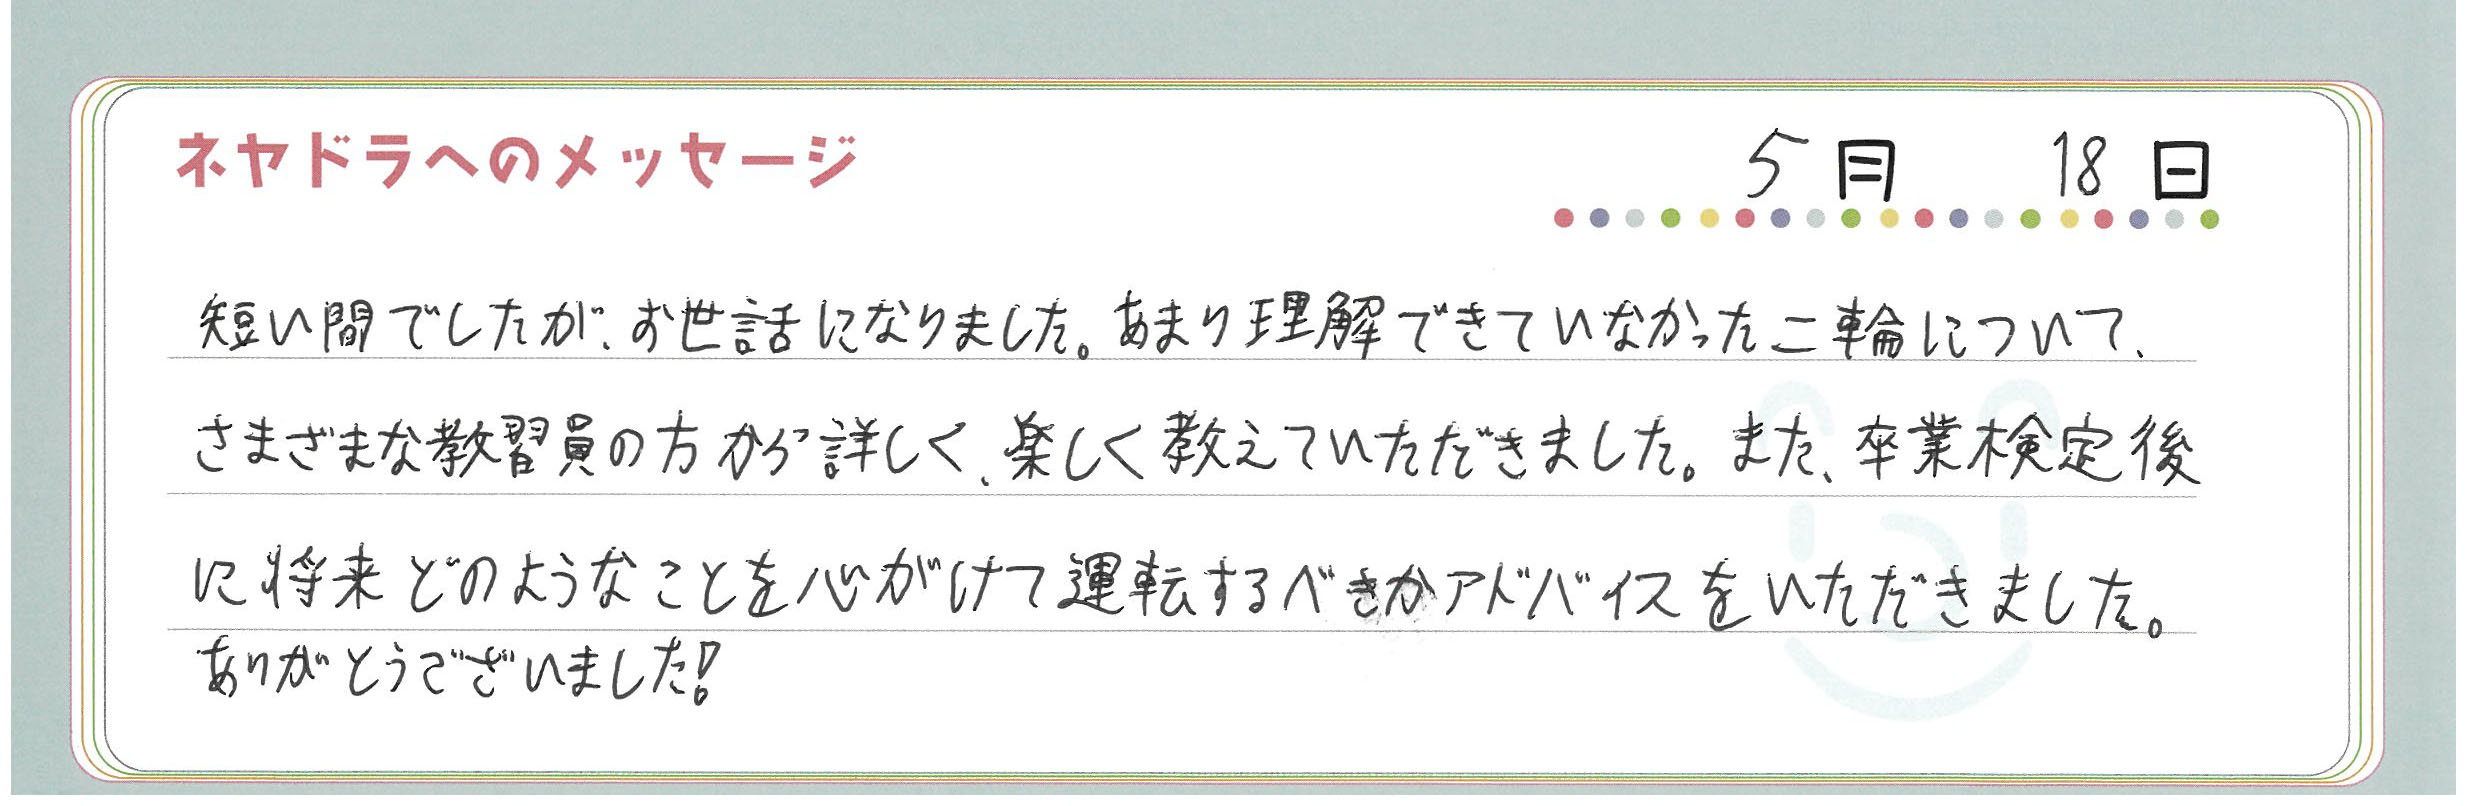 ネヤドラへのメッセージ
5月 18日
短い間でしたが、お世話になりました。あまり理解できていなかった二輪について、
さまざまな教習員の方から詳しく、楽しく教えていただきました。また、卒業検定後
に将来どのようなことを心がけて運転するべきかアドバイスをいただきました。
ありがとうございました!